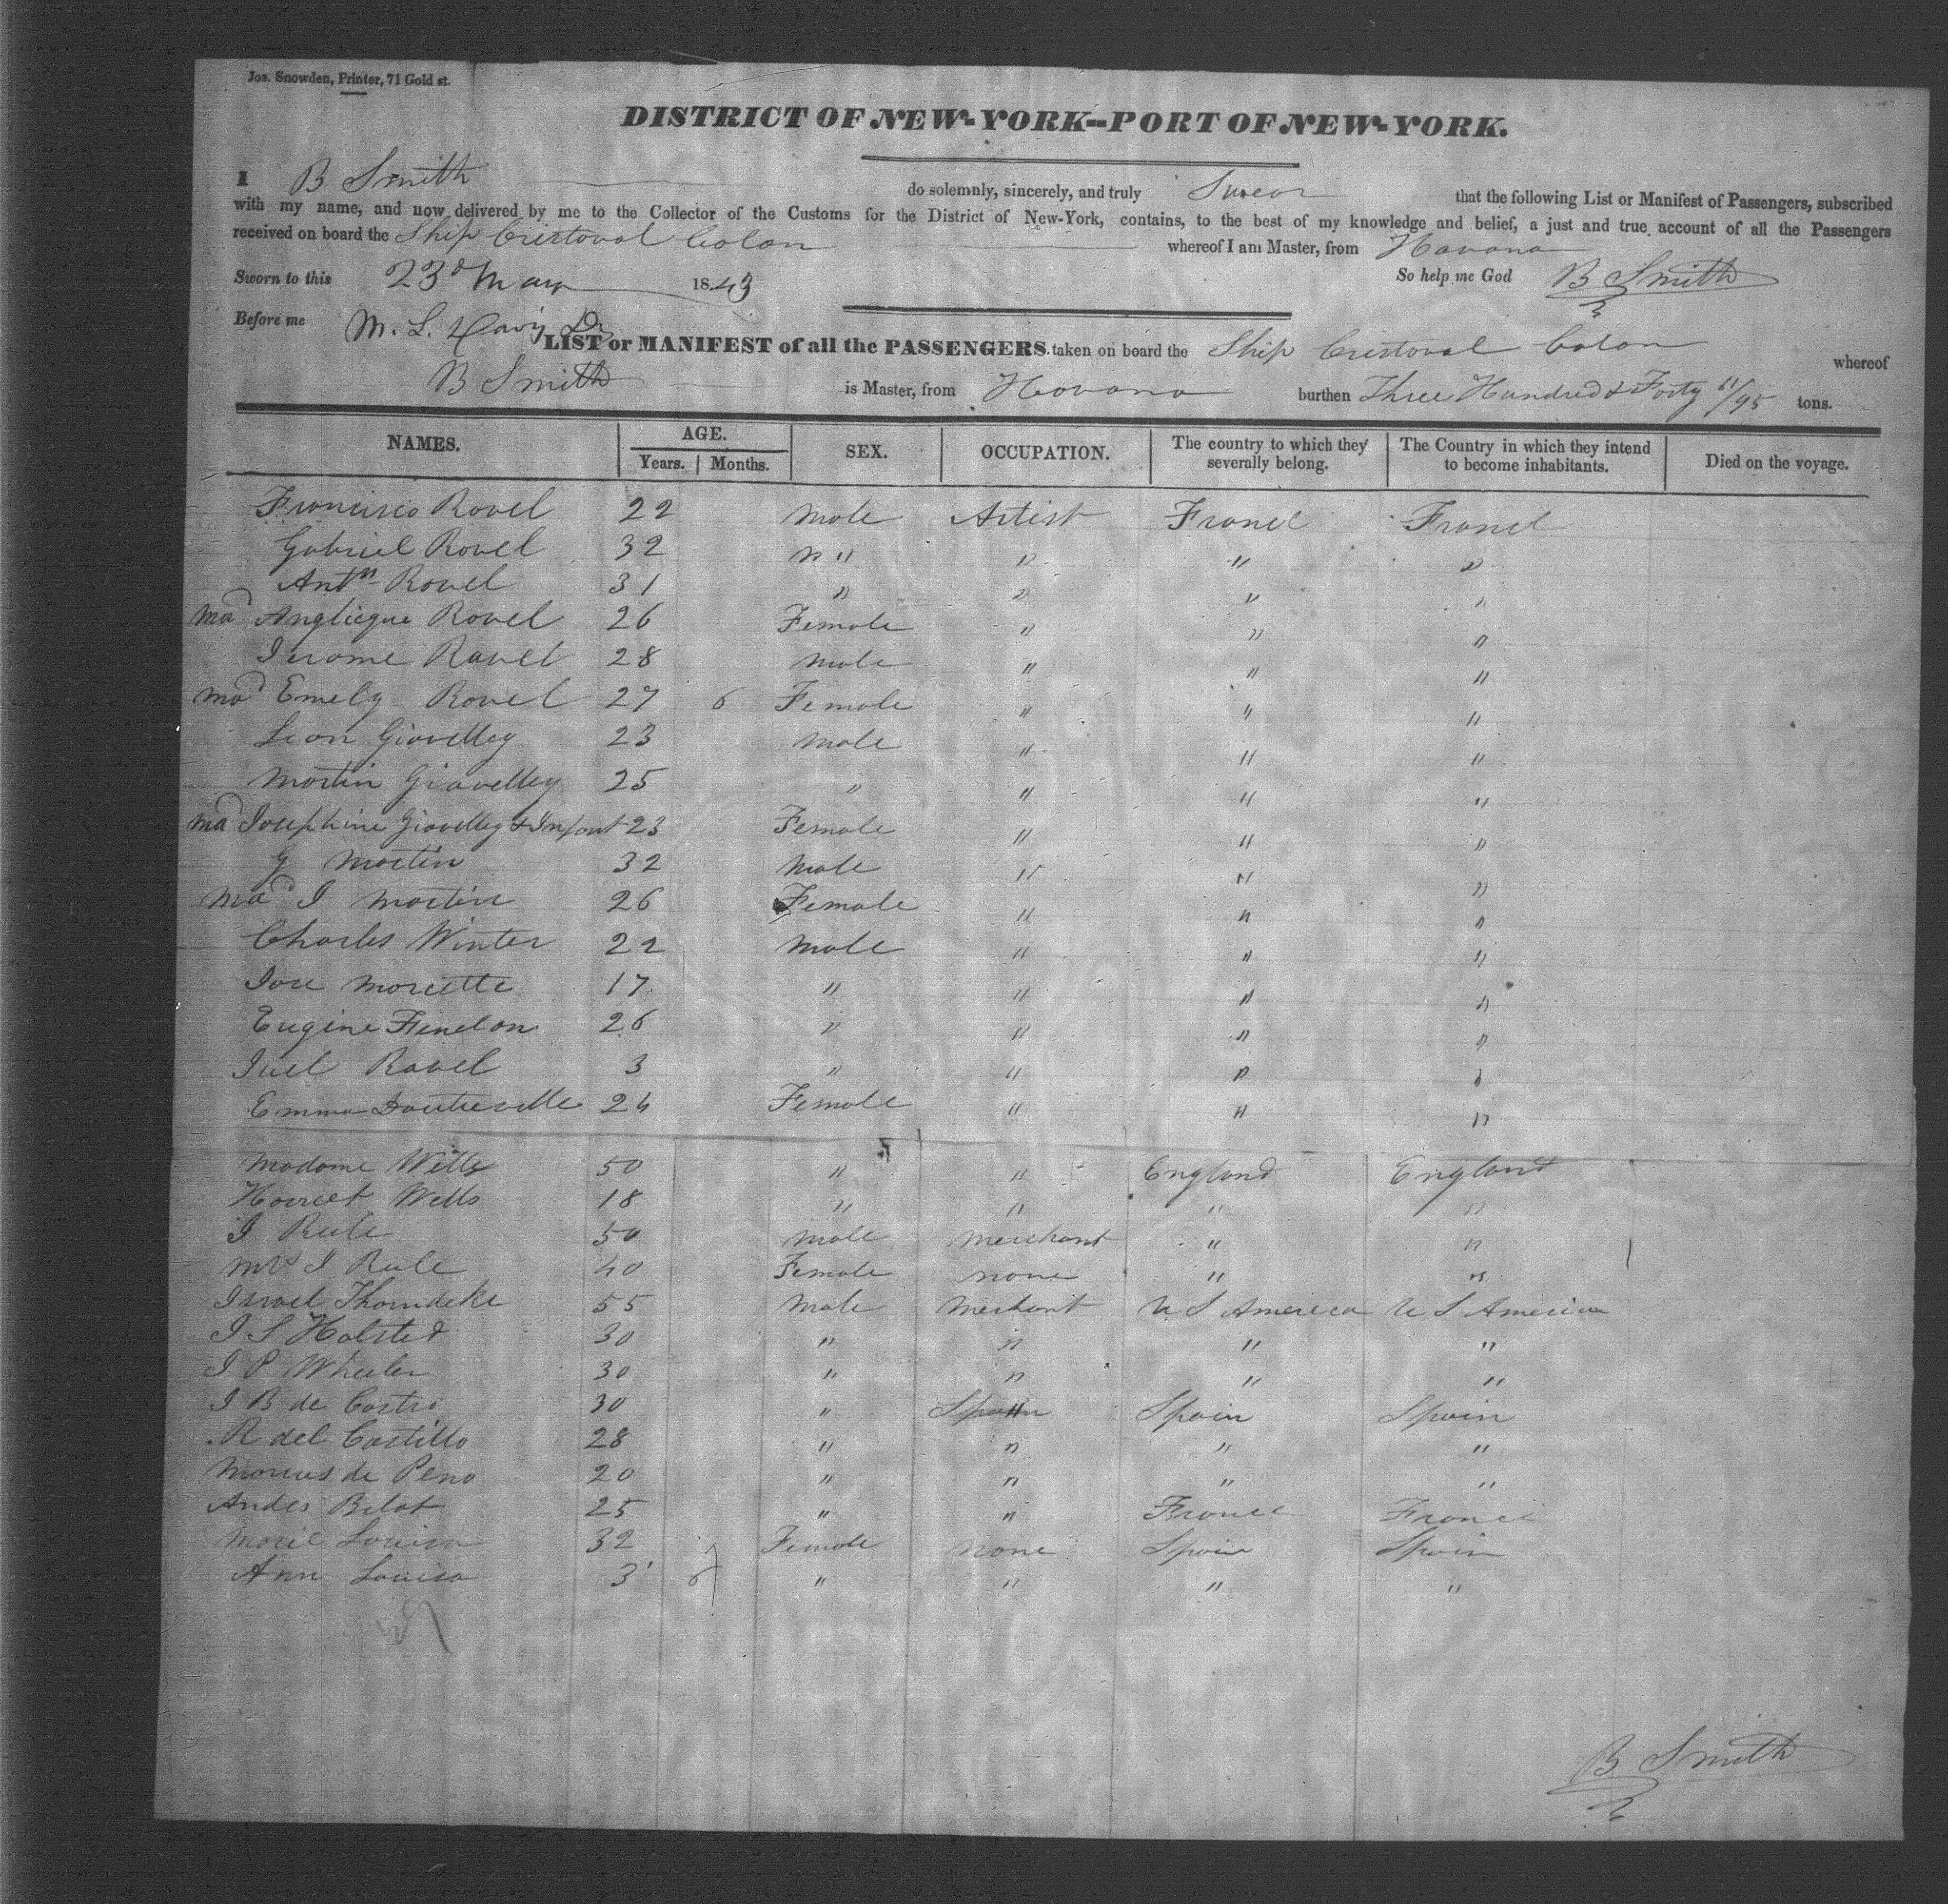 Jos. Snowden, Printer, 71 Gold st.
DISTRICT OF NEW-YORK--PORT OF NEW-YORK.
I B Smith do solemnly, sincerely, and truly Swear that the following List or Manifest of Passengers, subscribed
with my name, and now delivered by me to the Collector of the Customs for the District of New-York, contains, to the best of my knowledge and belief, a just and true account of all the Passengers
received on board the Ship Cristoval Colon whereof I am Master, from Havana
Sworn to this 23d May 1843 So help me God B Smith
Before me M. L. Davis
LIST or MANIFEST of all the PASSENGERS taken on board the Ship Cristoval Colon whereof
B Smith is Master, from Havana burthen Three Hundred & Forty /95 tons.
NAMES. AGE. Years. Months. SEX. OCCUPATION. The country to which they severally belong. The Country in which they intend to become inhabitants. Died on the voyage.
Francisco Ravel 22 male Artist France France
Gabriel Ravel 32 " " " "
Antn Ravel 31 " " " "
Mad Anglieque Ravel 26 Female " " "
Jerome Ravel 28 male " " "
Mad Emely Ravel 27 6 Female " " "
Leon Giavelley 23 male " " "
Martin Giavelley 25 " " " "
Mad Josephine Giavelley & Infant 23 Female " " "
G Martin 32 Male " " "
Mad J Martin 26 Female " " "
Charles Winter 22 Male " " "
Jose Marcette 17 " " " "
Eugine Fenelon 26 " " " "
Juel Ravel 3 " " " "
Emma 24 Female " " "
Madame Wells 50 " " England England
Harriet Wells 18 " " " "
J Rule 50 male merchant " "
Mrs J Rule 40 Female none " "
Israel Thorndeke 55 Male Merchant U S America U S America
J S Halsted 30 " " " "
J P Wheeler 30 " " " "
J B de Castro 30 " " Spain Spain
R del Castillo 28 " " " "
Marcus de Pena 20 " " " "
Andes Belot 25 " " France France
Marie Louisa 32 Female none Spain Spain
Ann Louisa 3 6 " " " "
B Smith